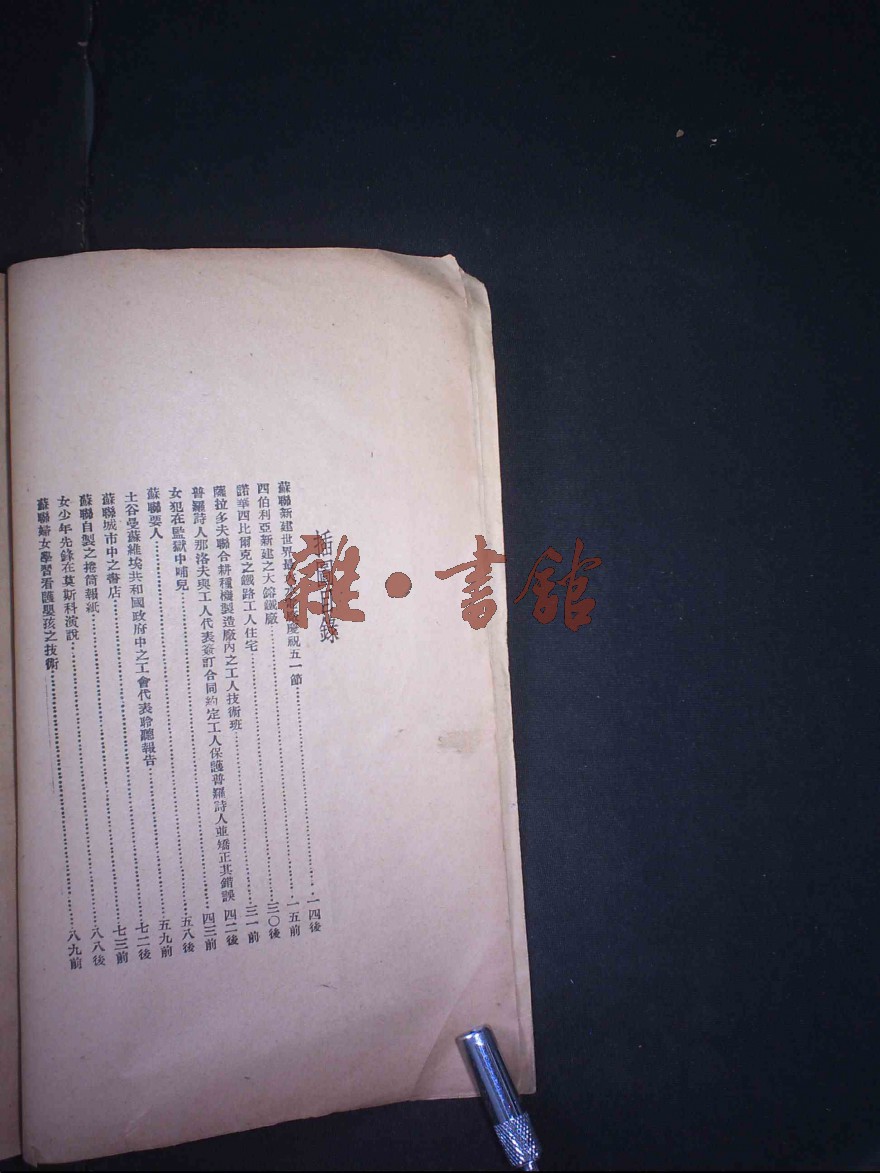 插圖目錄
蘇聯新建世界最大 廠慶祝五一節……一四後
西伯利亞新建之大鎔鐵廠……一五前
諾華西比爾克之鐵路工人住宅……三〇後
薩拉多夫聯合耕種機製造廠內之工人技術班……三一前
普羅詩人那洛夫與工人代表簽訂合同約定工人保護普羅詩人並矯正其錯誤 四二後
女犯在監獄中哺兒……四三前
蘇聯要人……五八後
土谷曼蘇維埃共和國政府中之工會代表聆聽報告……五九前
蘇聯城市中之書店……七二後
蘇聯自製之捲筒報紙……七三前
女少年先鋒在莫斯科演說……八八後
蘇聯婦女學習看護嬰孩之技術……八九前
雜·書館